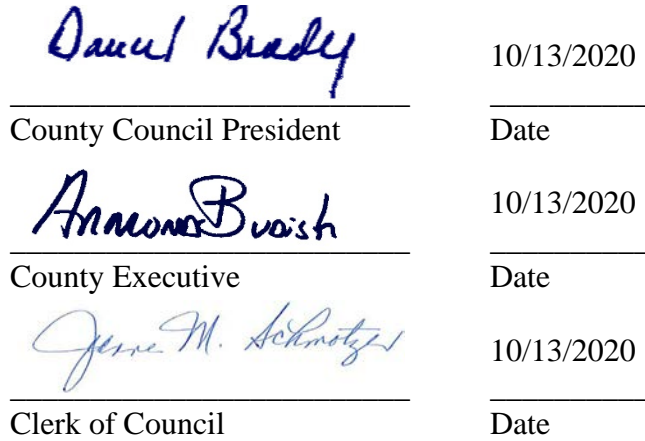 Daniel Brady 10/13/2020
County Council President Date
Armond Budish 10/13/2020
County Executive Date
Jeanne M. Schmotzer 10/13/2020
Clerk of Council Date